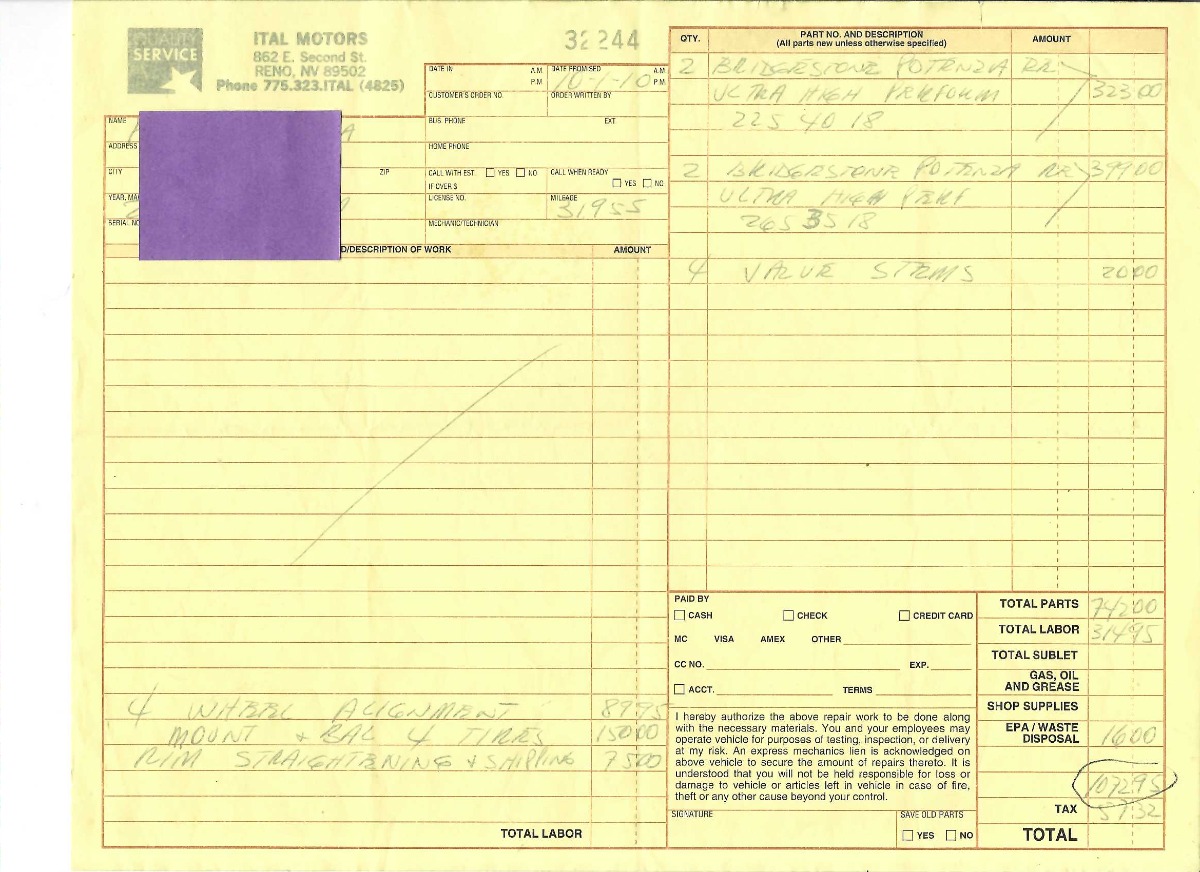 QUALITY
SERVICE
ITAL MOTORS
862 E. Second St.
RENO, NV 89502
Phone 775.323.ITAL (4825)
32244
DATE IN A.M. P.M.
DATE PROMISED 10-1-10 A.M. P.M.
CUSTOMER'S ORDER NO.
ORDER WRITTEN BY
NAME
BUS. PHONE EXT.
ADDRESS
HOME PHONE
CITY ZIP
CALL WITH EST. YES NO
IF OVER $
CALL WHEN READY
YES NO
YEAR, MA
LICENSE NO.
MILEAGE 31955
SERIAL NO
MECHANIC/TECHNICIAN
D/DESCRIPTION OF WORK AMOUNT
4 WHEEL ALIGNMENT 8995
MOUNT & BAL 4 TIRES 15000
RIM STRAIGHTENING & SHIPPING 7500
TOTAL LABOR
QTY. PART NO. AND DESCRIPTION AMOUNT
(All parts new unless otherwise specified)
2 BRIDGESTONE POTENZA RE
ULTRA HIGH PERFORM 32300
225 40 18
2 BRIDGESTONE POTENZA RE 39900
ULTRA HIGH PERF
265 35 18
4 VALUE STEMS 2000
PAID BY
CASH CHECK CREDIT CARD
MC VISA AMEX OTHER
CC NO. EXP.
ACCT. TERMS
I hereby authorize the above repair work to be done along
with the necessary materials. You and your employees may
operate vehicle for purposes of testing, inspection, or delivery
at my risk. An express mechanics lien is acknowledged on
above vehicle to secure the amount of repairs thereto. It is
understood that you will not be held responsible for loss or
damage to vehicle or articles left in vehicle in case of fire,
theft or any other cause beyond your control.
SIGNATURE
SAVE OLD PARTS
YES NO
TOTAL PARTS 74200
TOTAL LABOR 31495
TOTAL SUBLET
GAS, OIL
AND GREASE
SHOP SUPPLIES
EPA / WASTE
DISPOSAL 1600
107295
TAX 5732
TOTAL